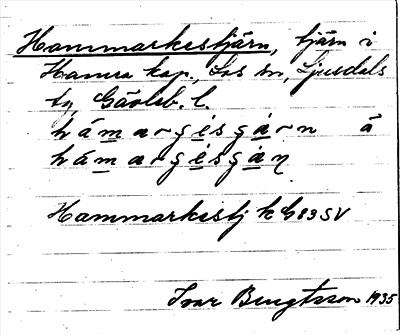 Hammarkestjärn, tjärn i
Hamra kap., Los sn, Ljusdals
tg Gävleb. l.
hámargesgárn å
hámargesgáṇ
Hammarkestj k G83SV
Ivar Bengtsson 1935